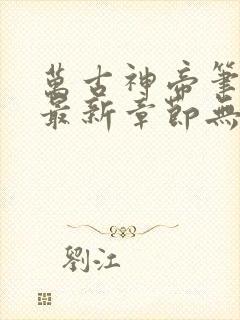 萬古神帝筆
最新章節無
劉江